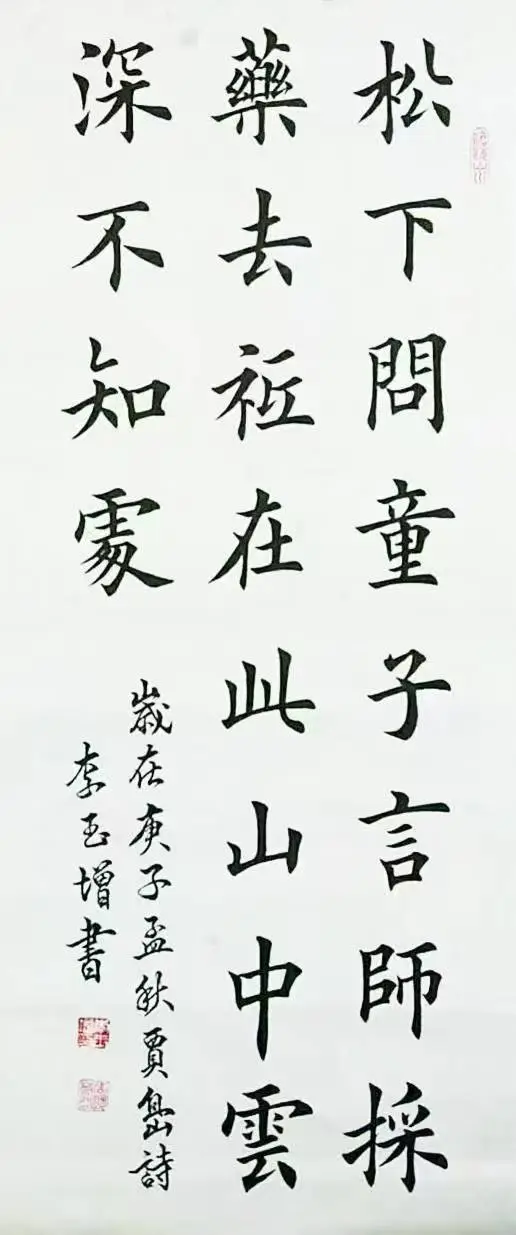 松下問童子言師採
藥去祇在此山中雲
深不知處
歲在庚子孟秋賈島詩
李玉增書